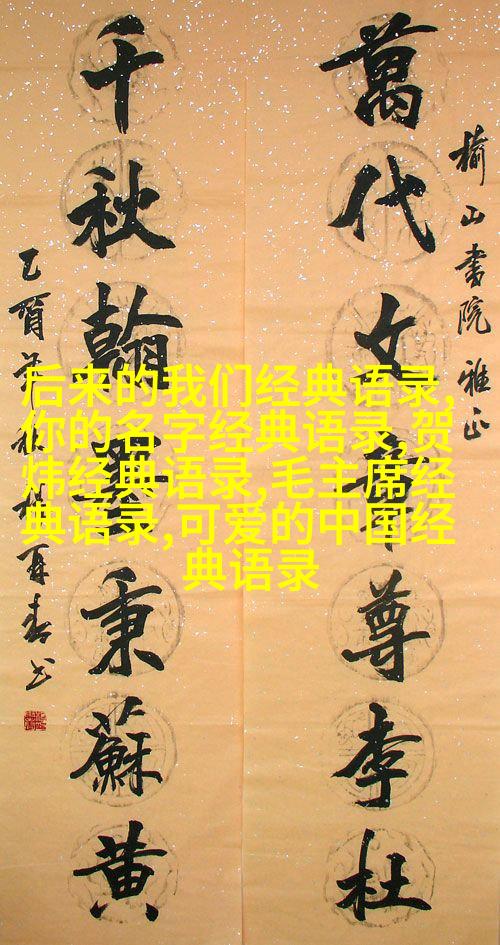 榆山书院雅正
萬代文章尊李杜
千秋翰墨秉蘇黄
后来的我们经典语录,
你的名字经典语录,贺
炜经典语录,毛主席经
典语录,可爱的中国经
典语录